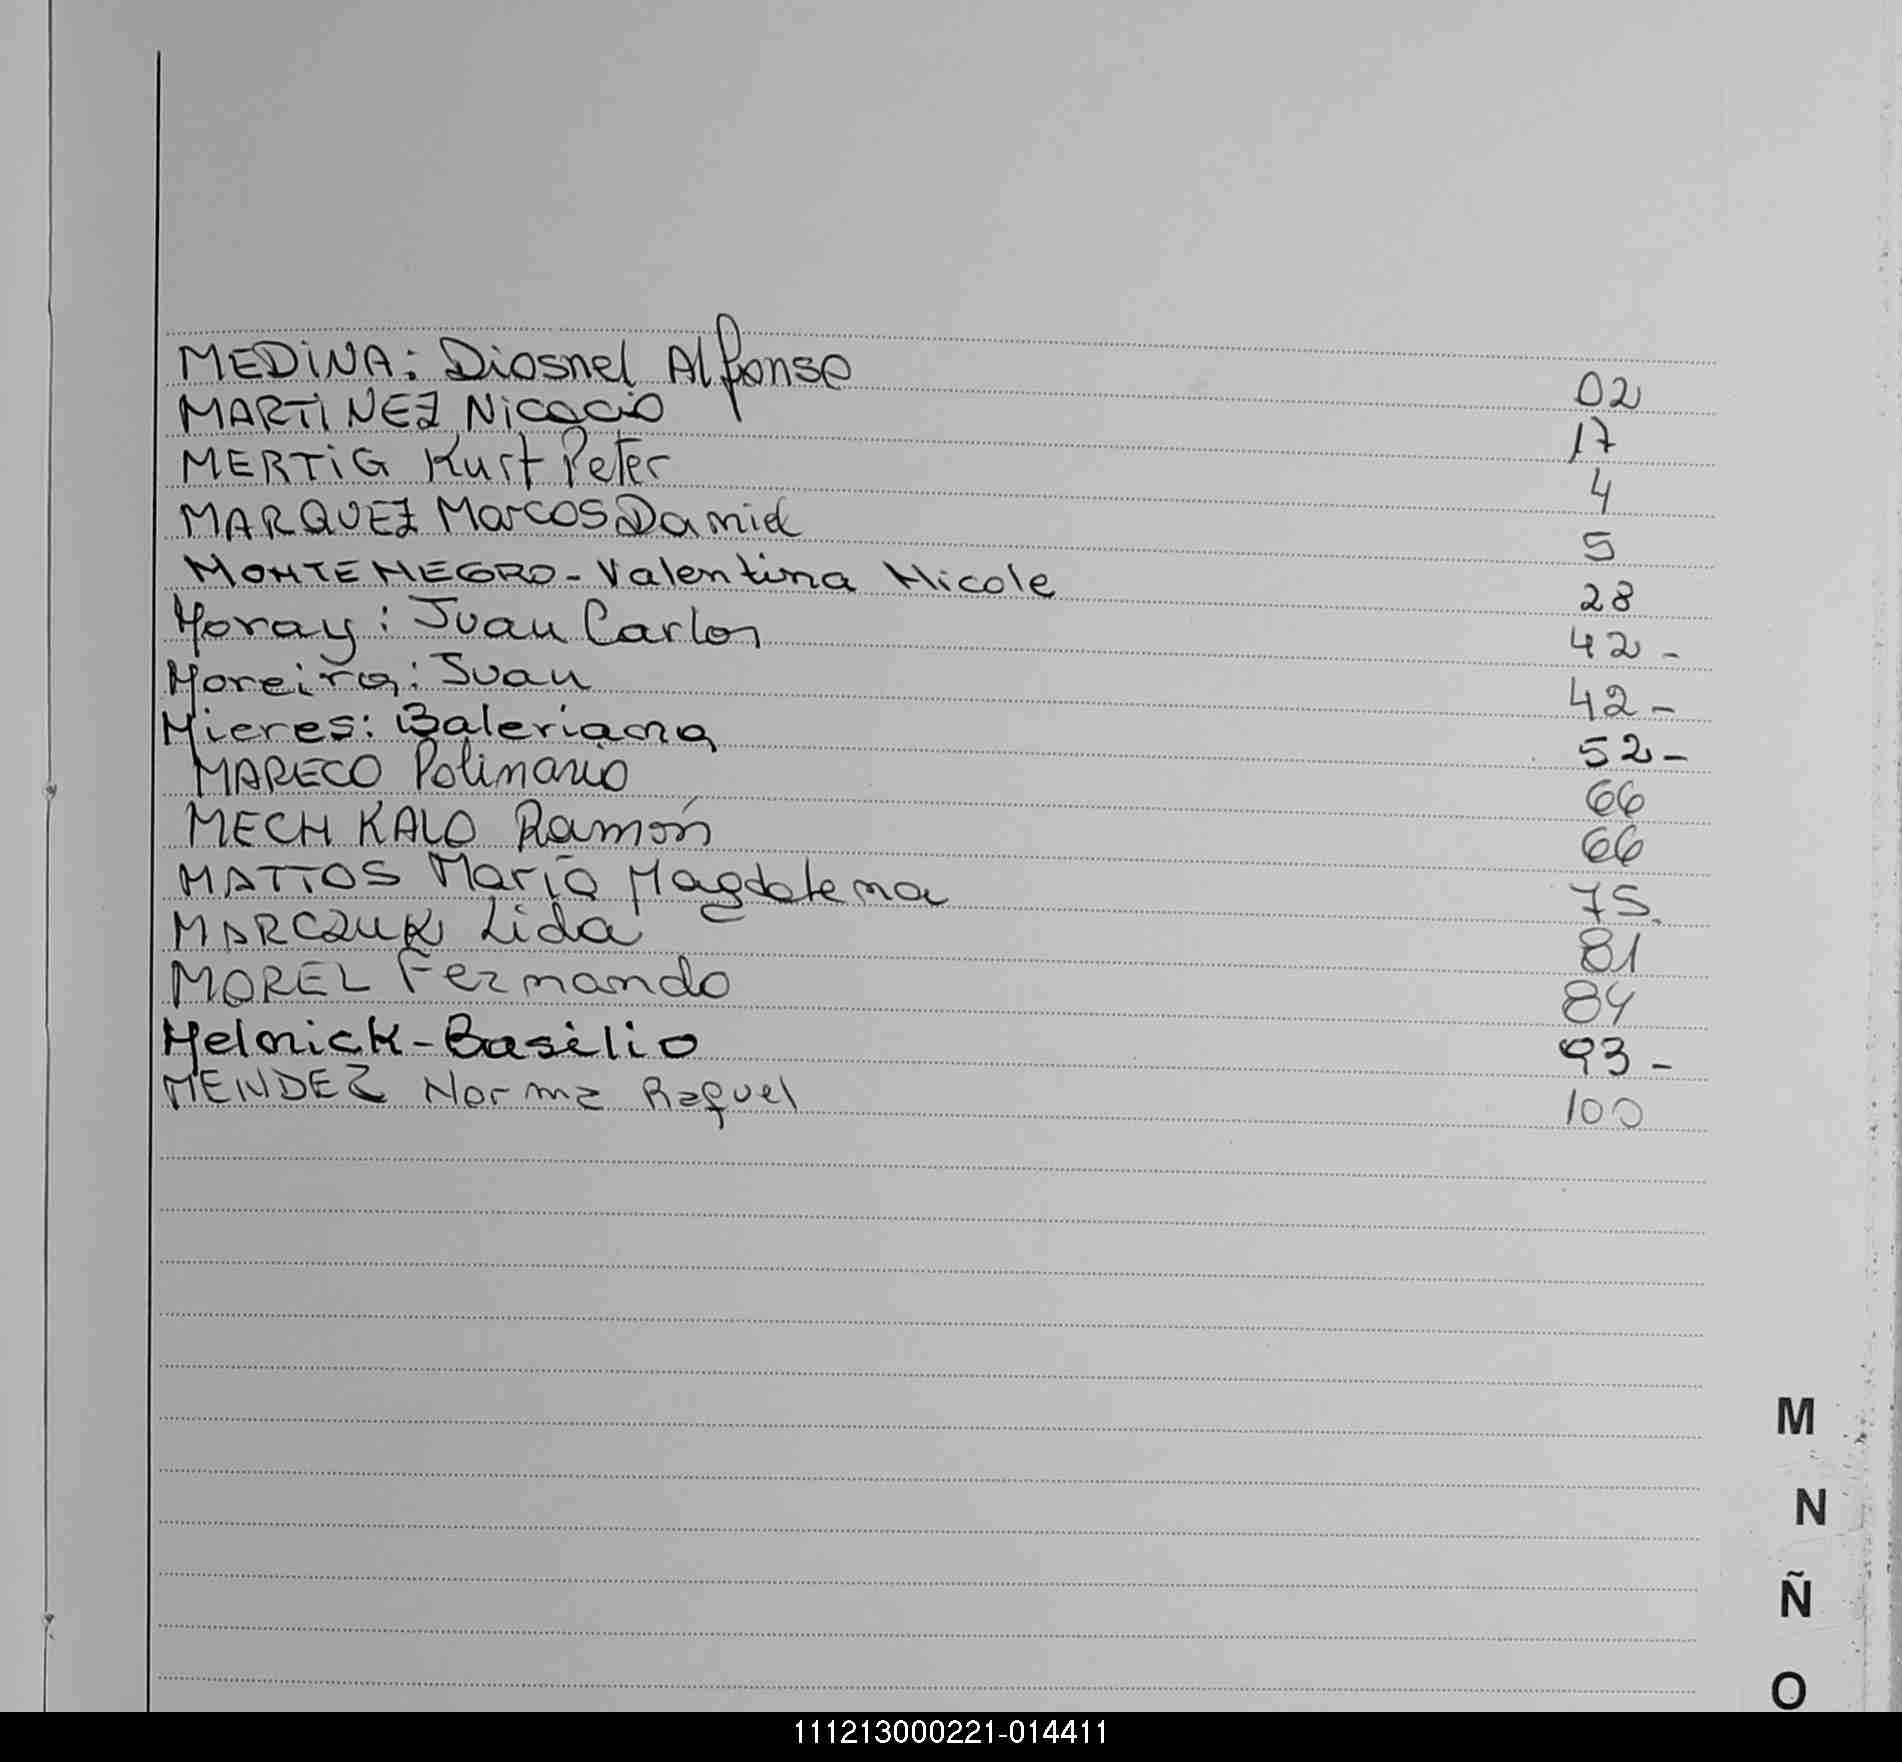 MEDINA: Diosnel Alfonso 02
MARTINEZ Nicacio 17
MERTIG Kurt Peter 4
MARQUEZ Marcos Daniel 5
MONTENEGRO - Valentina Nicole 28
Moray: Juan Carlos 42 -
Moreira: Juan 42 -
Mieres: Baleriana 52 -
MARECO Polinario 66
MECHKALO Ramón 66
MATTOS María Magdalena 75.
MARCZUK Lida 81
MOREL Fernando 84
Melnick - Basilio 93 -
MENDEZ Norma Raquel 100
M
N
Ñ
O
111213000221-014411